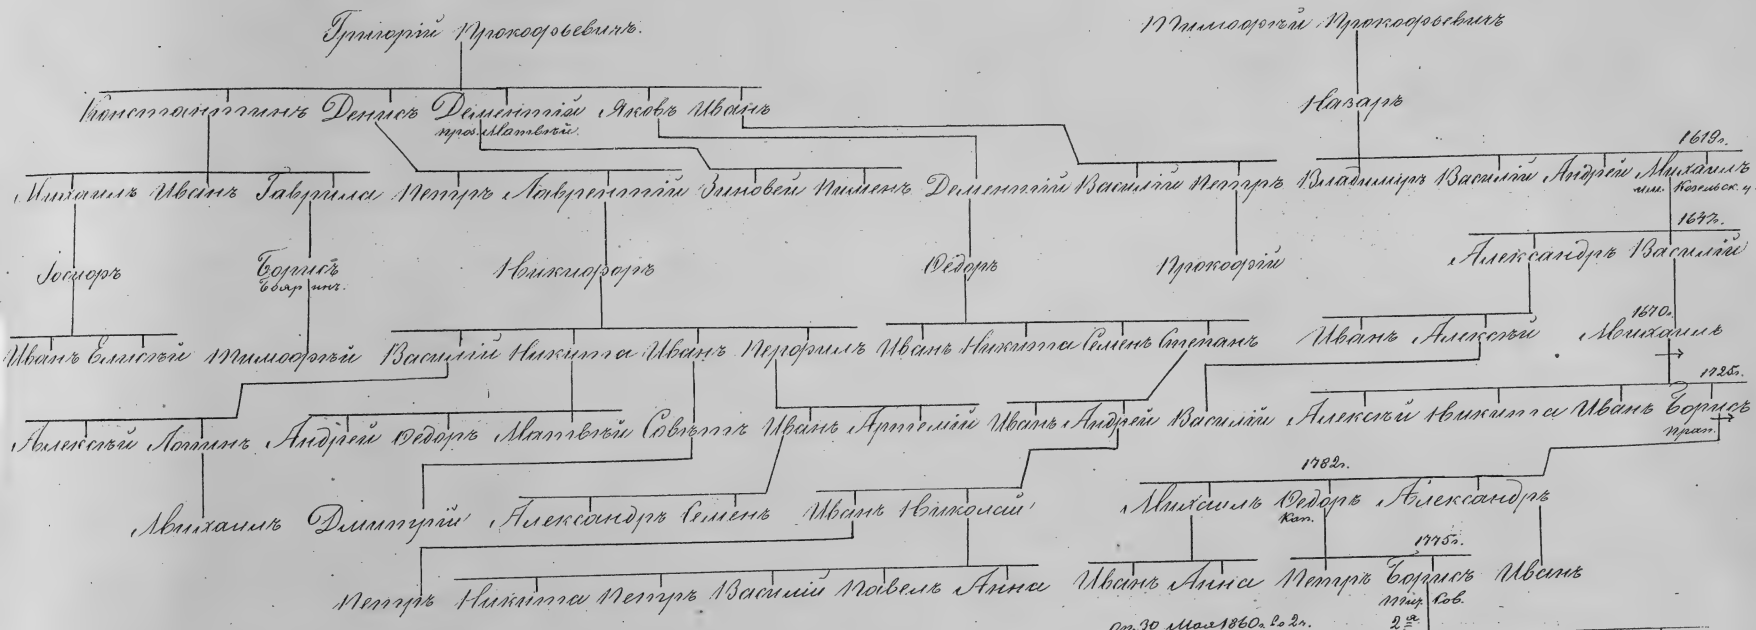 Григорій Прокофьевичъ. Тимофѣй Прокофьевичъ
Константинъ Денисъ Дементій Яковъ Иванъ Назаръ
проз. Матвѣй.
1619г.
Михаилъ Иванъ Гаврила Петръ Лаврентій Зиновей Пименъ Дементій Василій Петръ Владиміръ Василій Андрей Михаилъ
Козельск. у.
1647г.
Іосифъ Борисъ Никифоръ Ѳедоръ Прокофій Александръ Василій
Бояринъ.
1670г.
Иванъ Елисѣй Тимофѣй Василій Никита Иванъ Перфилъ Иванъ Никита Семенъ Степанъ Иванъ Алексѣй Михаилъ
1725г.
Алексѣй Логинъ Андрей Ѳедоръ Матвѣй Совѣтъ Иванъ Артемій Иванъ Андрей Василій Алексѣй Никита Иванъ Борисъ
прап.
1782г.
Михаилъ Дмитрій Александръ Семенъ Иванъ Николай Михаилъ Ѳедоръ Александръ
Кап.
1775г.
Петръ Никита Петръ Василій Павелъ Анна Иванъ Анна Петръ Борисъ Иванъ
Тит. Сов.
Оп. 30 Мая 1860г. во 2 ч. 2я